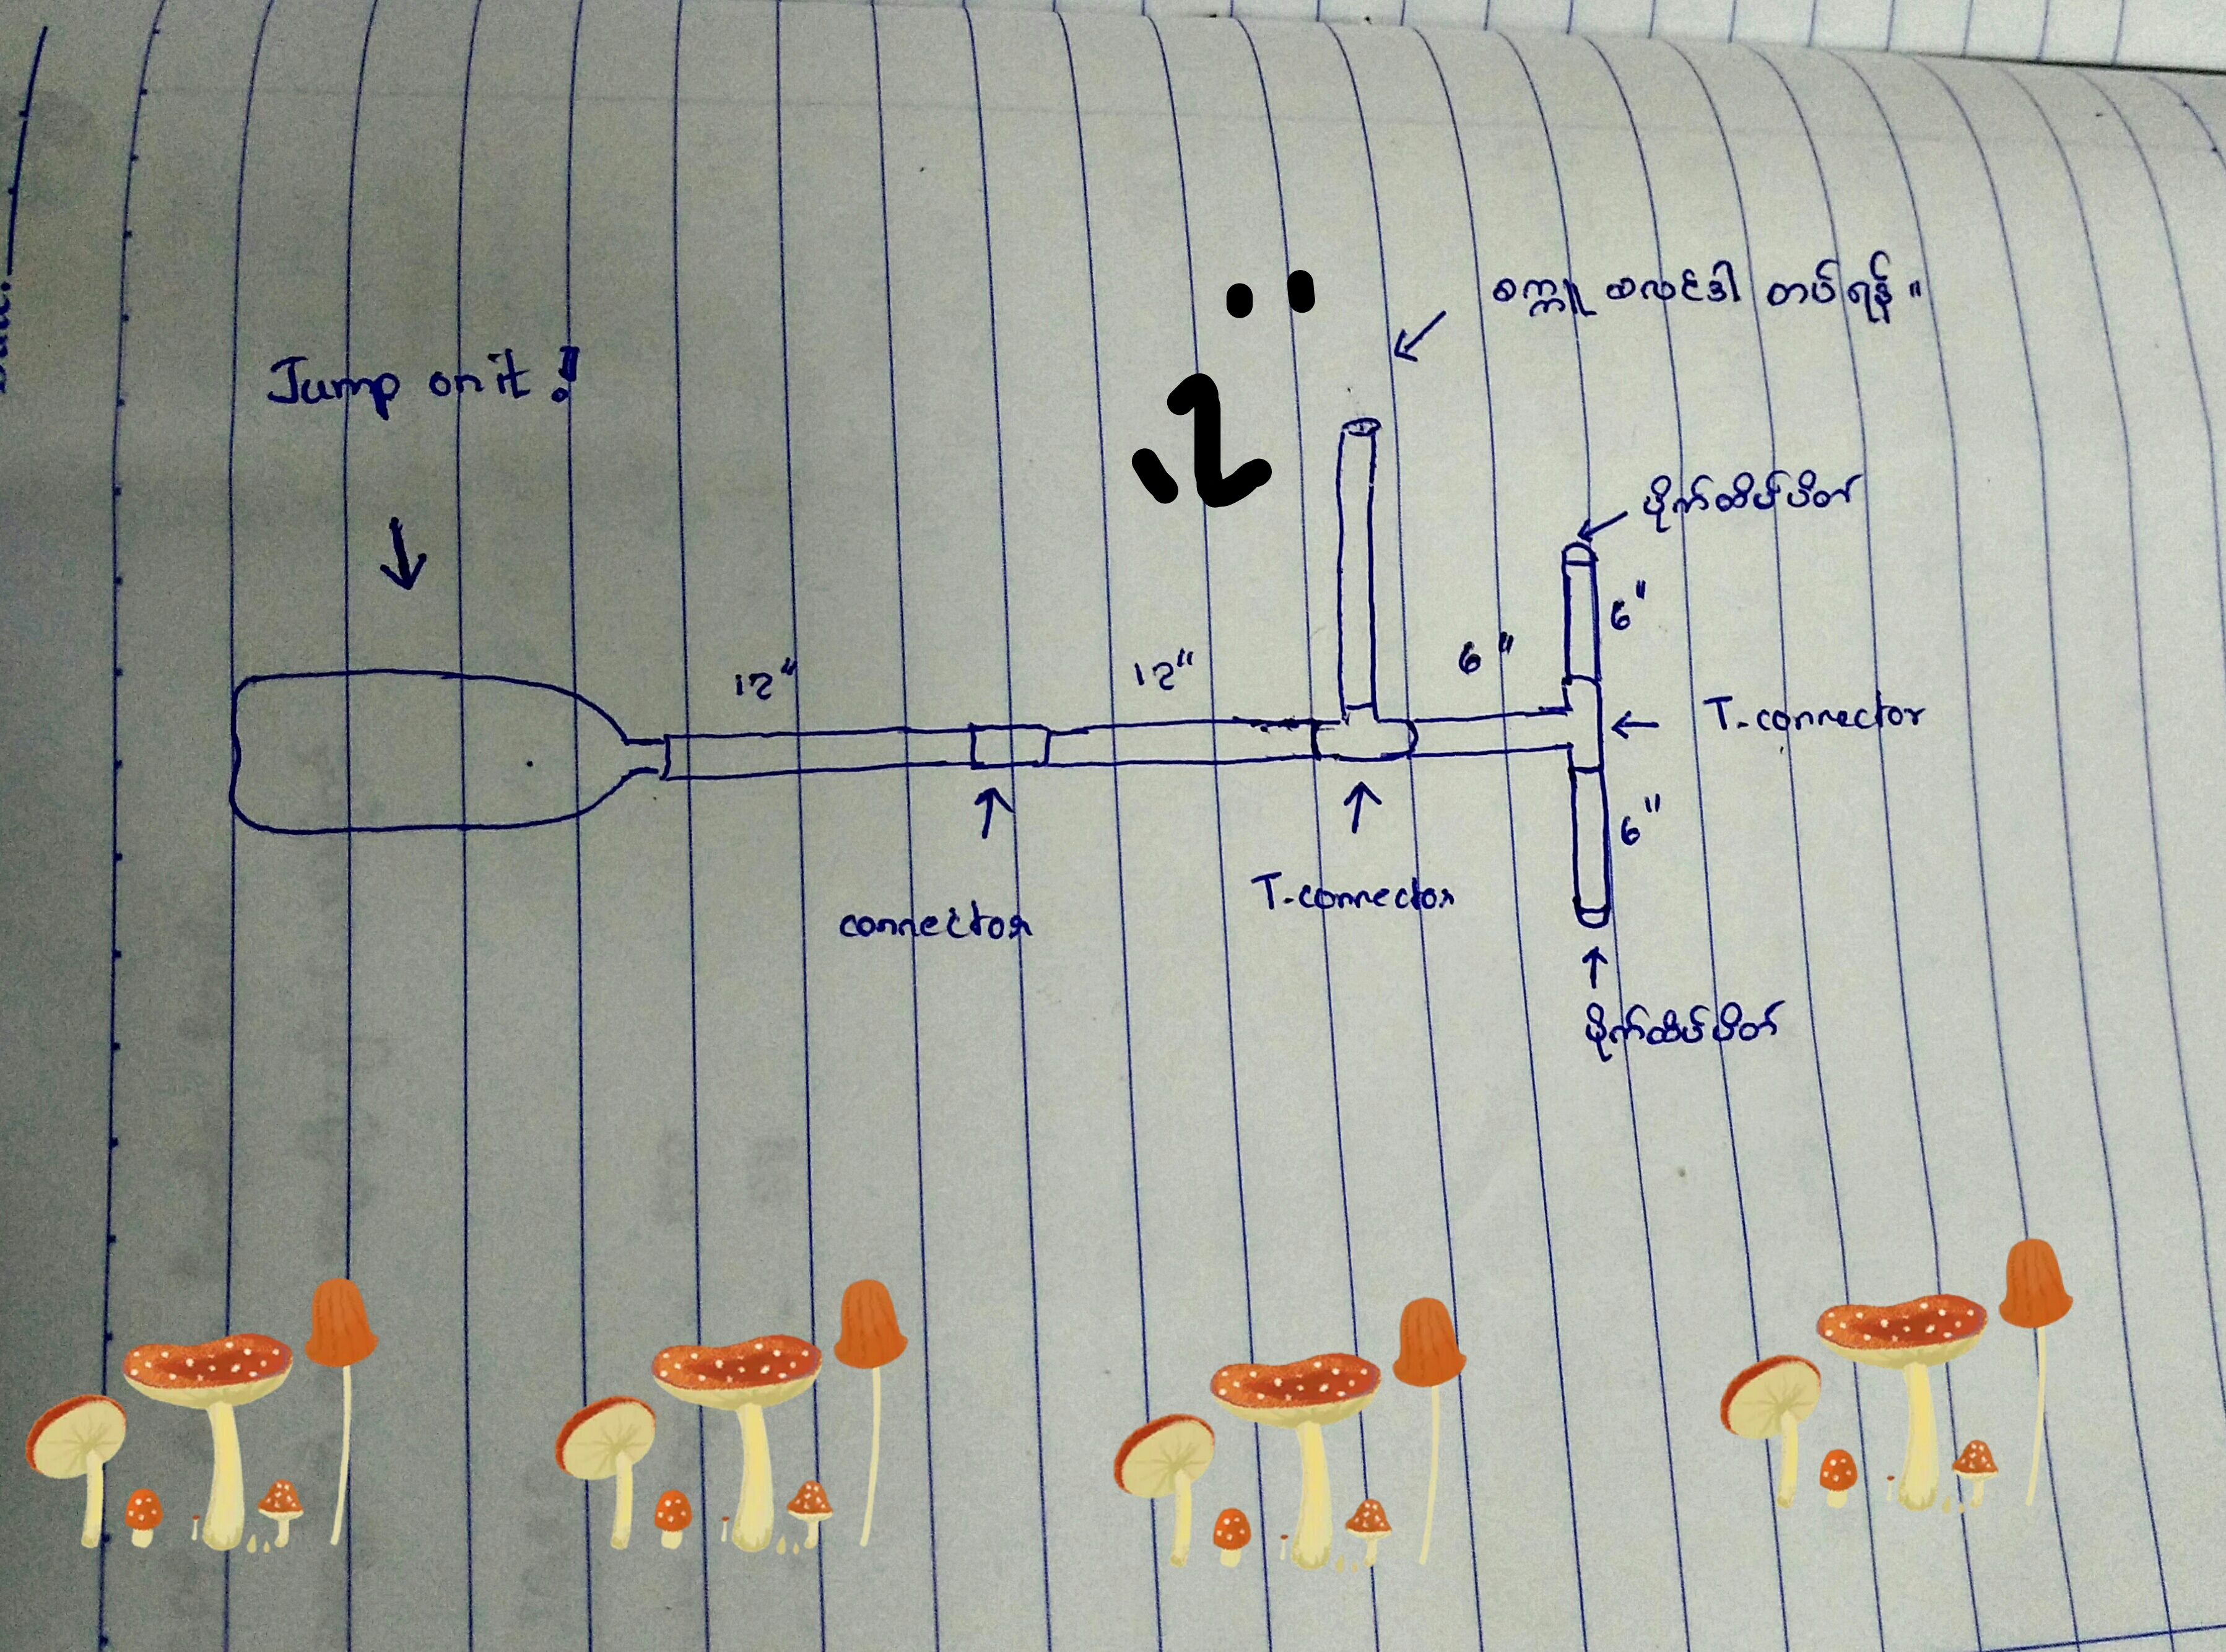 Jump on it !
စက္ကူ ဆလင်ဒါ တပ်ရန် ။
12"
ပိုက်ထိပ်ပိတ်
6"
12"
12"
6"
T-connector
6"
connector
T-connector
ပိုက်ထိပ်ပိတ်